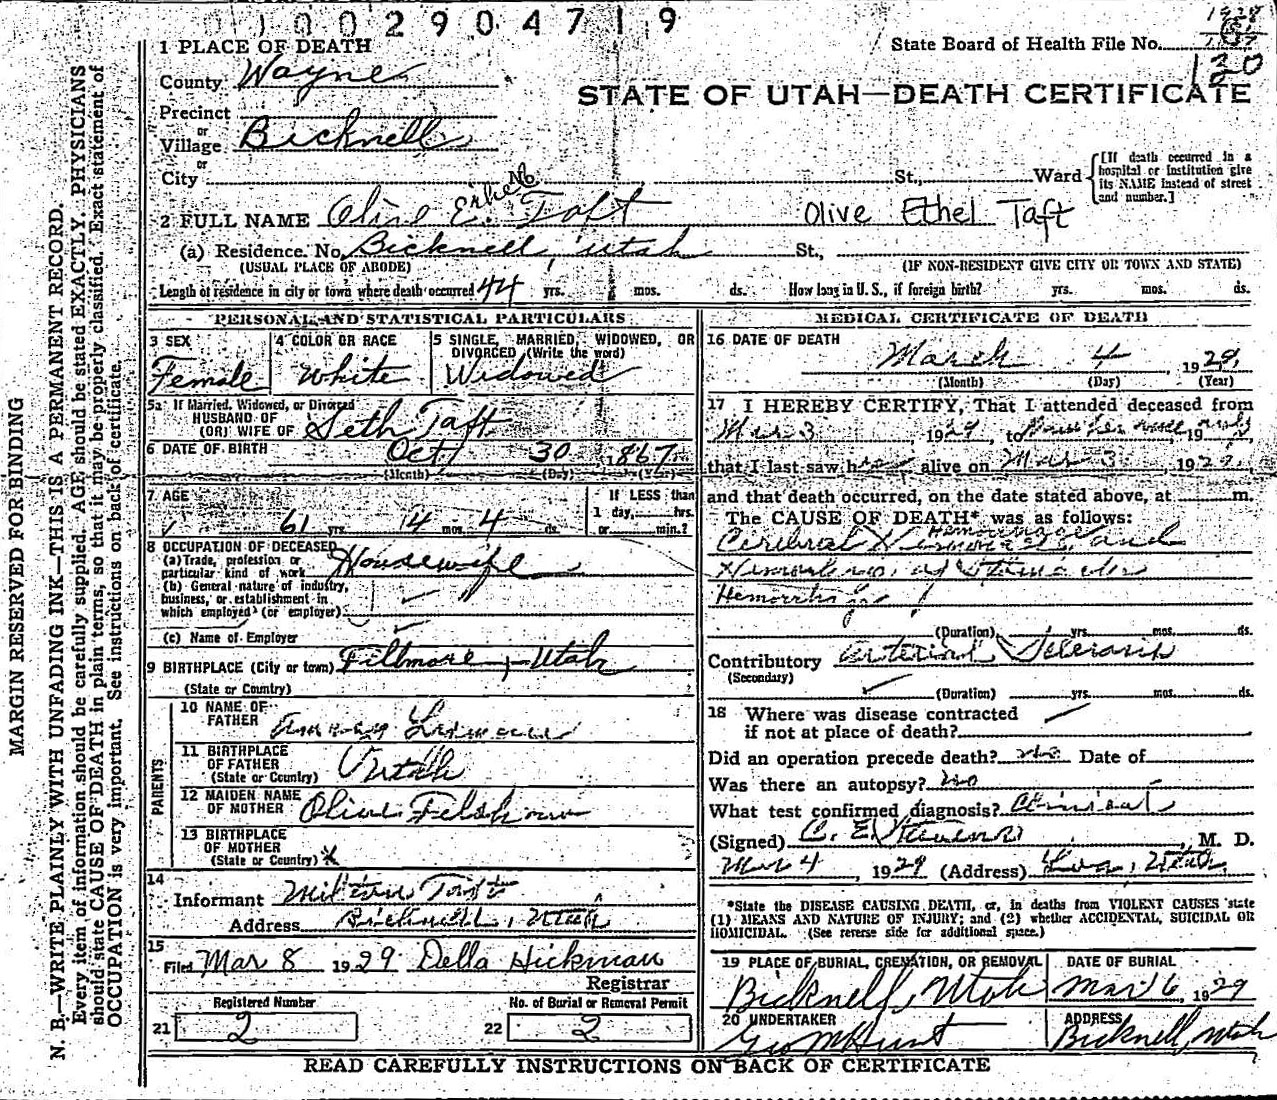 0002904719
1928
State Board of Health File No.
120
STATE OF UTAH—DEATH CERTIFICATE
1 PLACE OF DEATH
County Wayne
Precinct
or
Village Bicknell
or
City St., Ward
[If death occurred in a hospital or institution give its NAME instead of street and number.]
2 FULL NAME Olive E. Taft Olive Ethel Taft
(a) Residence. No. Bicknell, Utah St.,
(USUAL PLACE OF ABODE) (IF NON-RESIDENT GIVE CITY OR TOWN AND STATE)
Length of residence in city or town where death occurred 44 yrs. mos. ds. How long in U. S., if foreign birth? yrs. mos. ds.
PERSONAL AND STATISTICAL PARTICULARS
3 SEX
Female
4 COLOR OR RACE
White
5 SINGLE, MARRIED, WIDOWED, OR DIVORCED (Write the word)
Widowed
5a If Married, Widowed, or Divorced
HUSBAND OF
(OR) WIFE OF Seth Taft
6 DATE OF BIRTH Oct 30 1867
(Month) (Day) (Year)
7 AGE
61 yrs. 4 mos. 4 ds.
If LESS than
1 day, hrs.
or min.?
8 OCCUPATION OF DECEASED
(a) Trade, profession or
particular kind of work Housewife
(b) General nature of industry,
business, or establishment in
which employed (or employer)
(c) Name of Employer
9 BIRTHPLACE (City or town) Fillmore, Utah
(State or Country)
PARENTS
10 NAME OF
FATHER
11 BIRTHPLACE
OF FATHER
(State or Country) Utah
12 MAIDEN NAME
OF MOTHER Olive Felshaw
13 BIRTHPLACE
OF MOTHER
(State or Country)
14
Informant Milton Taft
Address Bicknell, Utah
15
Filed Mar 8 1929 Della Hickman
Registrar
Registered Number
21 2
No. of Burial or Removal Permit
22 2
MEDICAL CERTIFICATE OF DEATH
16 DATE OF DEATH
March 4 1929
(Month) (Day) (Year)
17 I HEREBY CERTIFY, That I attended deceased from
Mar 3, 1929 to 19
that I last saw her alive on Mar 3 1929,
and that death occurred, on the date stated above, at m.
The CAUSE OF DEATH* was as follows:
Cerebral Hemorrhage and
Hemorrhage
(Duration) yrs. mos. ds.
Contributory Arterial Sclerosis
(Secondary)
(Duration) yrs. mos. ds.
18 Where was disease contracted
if not at place of death?
Did an operation precede death? no Date of
Was there an autopsy? no
What test confirmed diagnosis? Clinical
(Signed) C. E. Stevens, M. D.
Mar 4, 1929 (Address) Loa, Utah
*State the DISEASE CAUSING DEATH, or, in deaths from VIOLENT CAUSES state
(1) MEANS AND NATURE OF INJURY; and (2) whether ACCIDENTAL, SUICIDAL OR
HOMICIDAL. (See reverse side for additional space.)
19 PLACE OF BURIAL, CREMATION, OR REMOVAL
Bicknell, Utah
DATE OF BURIAL
Mar 6, 1929
20 UNDERTAKER
Geo M Hunt
ADDRESS
Bicknell, Utah
READ CAREFULLY INSTRUCTIONS ON BACK OF CERTIFICATE
MARGIN RESERVED FOR BINDING
N. B.—WRITE PLAINLY WITH UNFADING INK—THIS IS A PERMANENT RECORD.
Every item of information should be carefully supplied. AGE should be stated EXACTLY. PHYSICIANS
should state CAUSE OF DEATH in plain terms, so that it may be properly classified. Exact statement of
OCCUPATION is very important. See instructions on back of certificate.